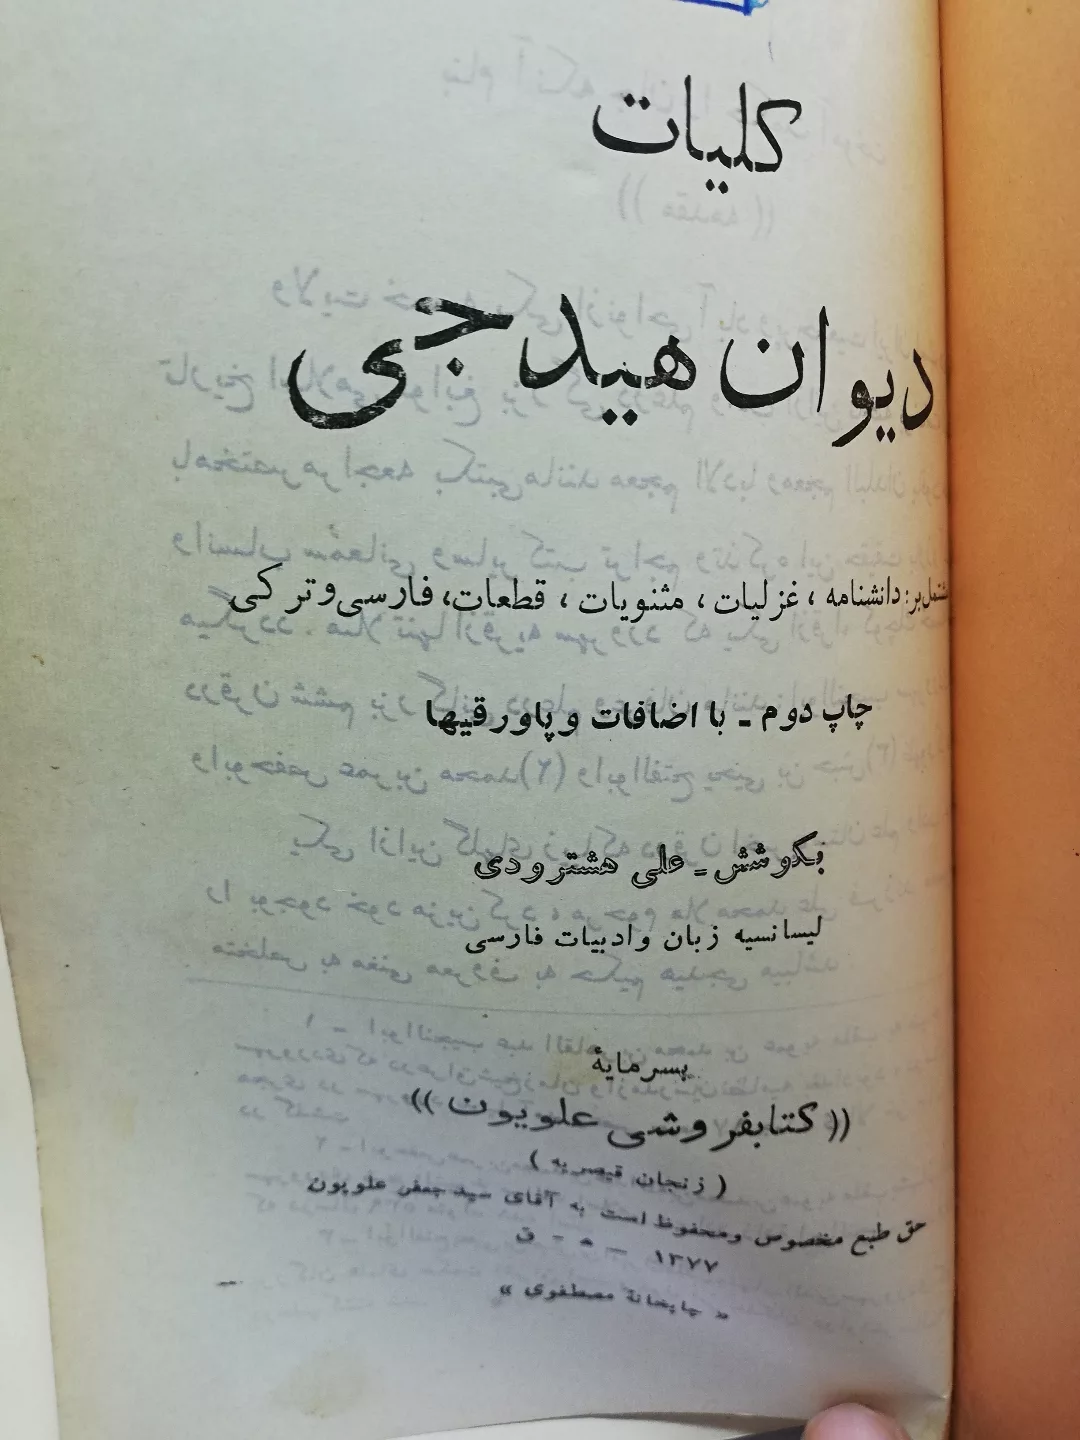 کلیات
دیوان هیدجی
مشتمل بر: دانشنامه، غزلیات، مثنویات، قطعات، فارسی و ترکی
چاپ دوم ـ با اضافات و پاورقیها
بکوشش ـ علی هشترودی
لیسانسیه زبان و ادبیات فارسی
بسرمایهٔ
(( کتابفروشی علویون ))
( زنجان قیصریه )
حق طبع مخصوص ومحفوظ است به آقای سید جعفر علویون
۱۳۷۷ – ه - ق
« چاپخانهٔ مصطفوی »